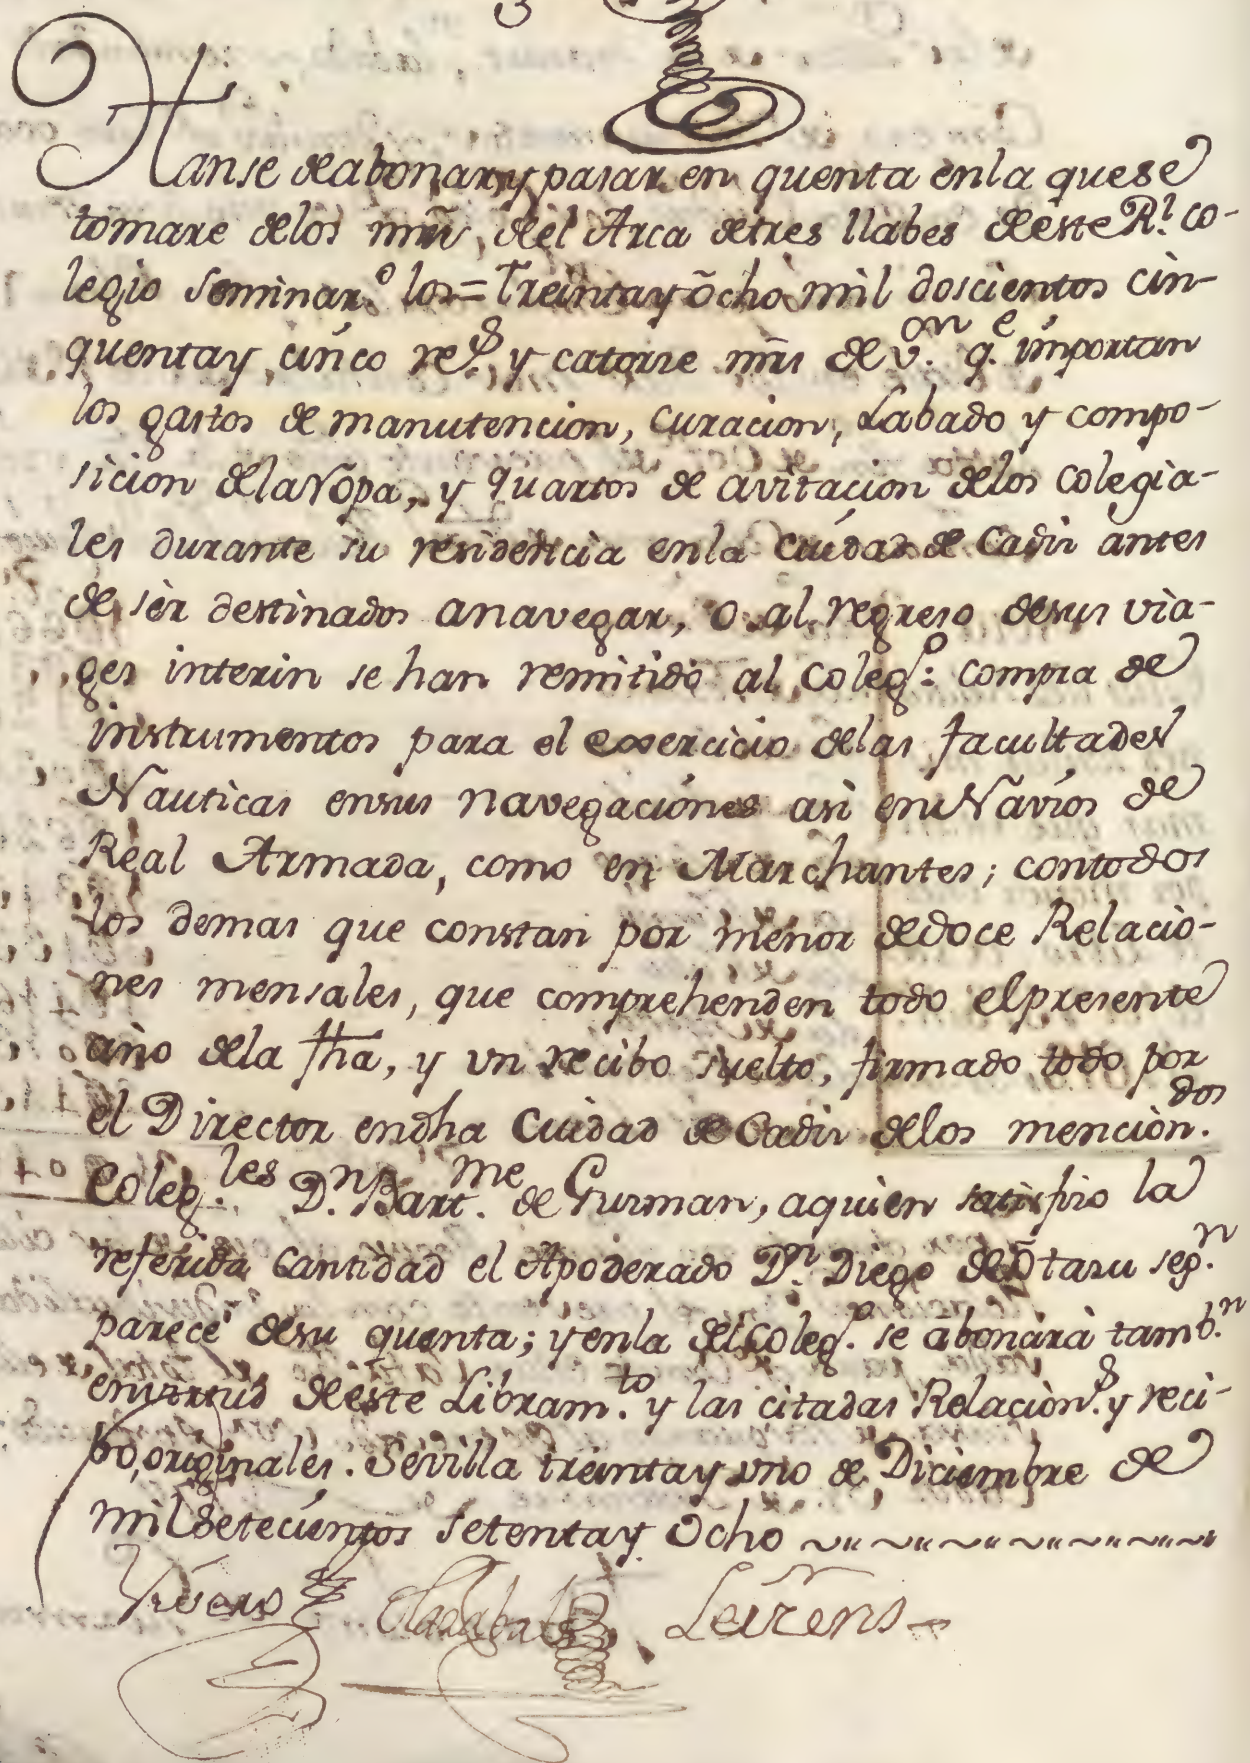 Hanse de abonar y pasar en quenta en la que se
tomare de los mrs̃ del Arca de tres llabes de este Rl. Co-
legio Seminaro. los = Treinta y ocho mil doscientos cin-
quenta y cinco res. y catorze mrs̃ de von. qe. importan
los gastos de manutencion, curacion, Labado y compo-
sicion de la ropa, y quartos de avitacion de los colegia-
les durante su residencia en la Ciudad de Cadiz antes
de sèr destinados a navegar, o al regreso de sus via-
ges interin se han remitido al colego: compra de
instrumentos para el exercicio de las facultades
Nauticas en sus navegaciones asi en Navios de
Real Armada, como en Marchantes; con todos
los demas que constan por menor de doce Relacio-
nes mensales, que comprehenden todo el presente
año de la fha, y un recibo suelto, firmado todo por
el Director en dha Ciudad de Cadiz de los mención.dos
Coleg.les Dn. Bart.me de Guzman, a quien satisfizo la
referida Cantidad el Apoderado Dn. Diego de Otazu seg.n
parece de su quenta; y en la del coleg.o se abonará tamb.n
en virtud de este Libram.to y las citadas Relacion.s y reci-
bo, originales. Sevilla treinta y uno de Diciembre de
mil setecientos setenta y ocho
Rivero Olazabal